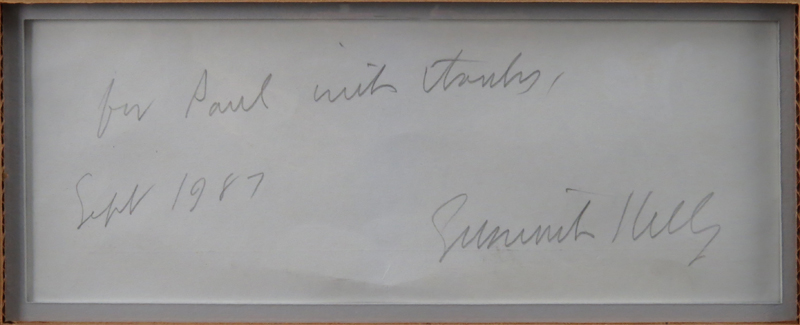 for Paul with thanks,
Sept 1987
Ellsworth Kelly